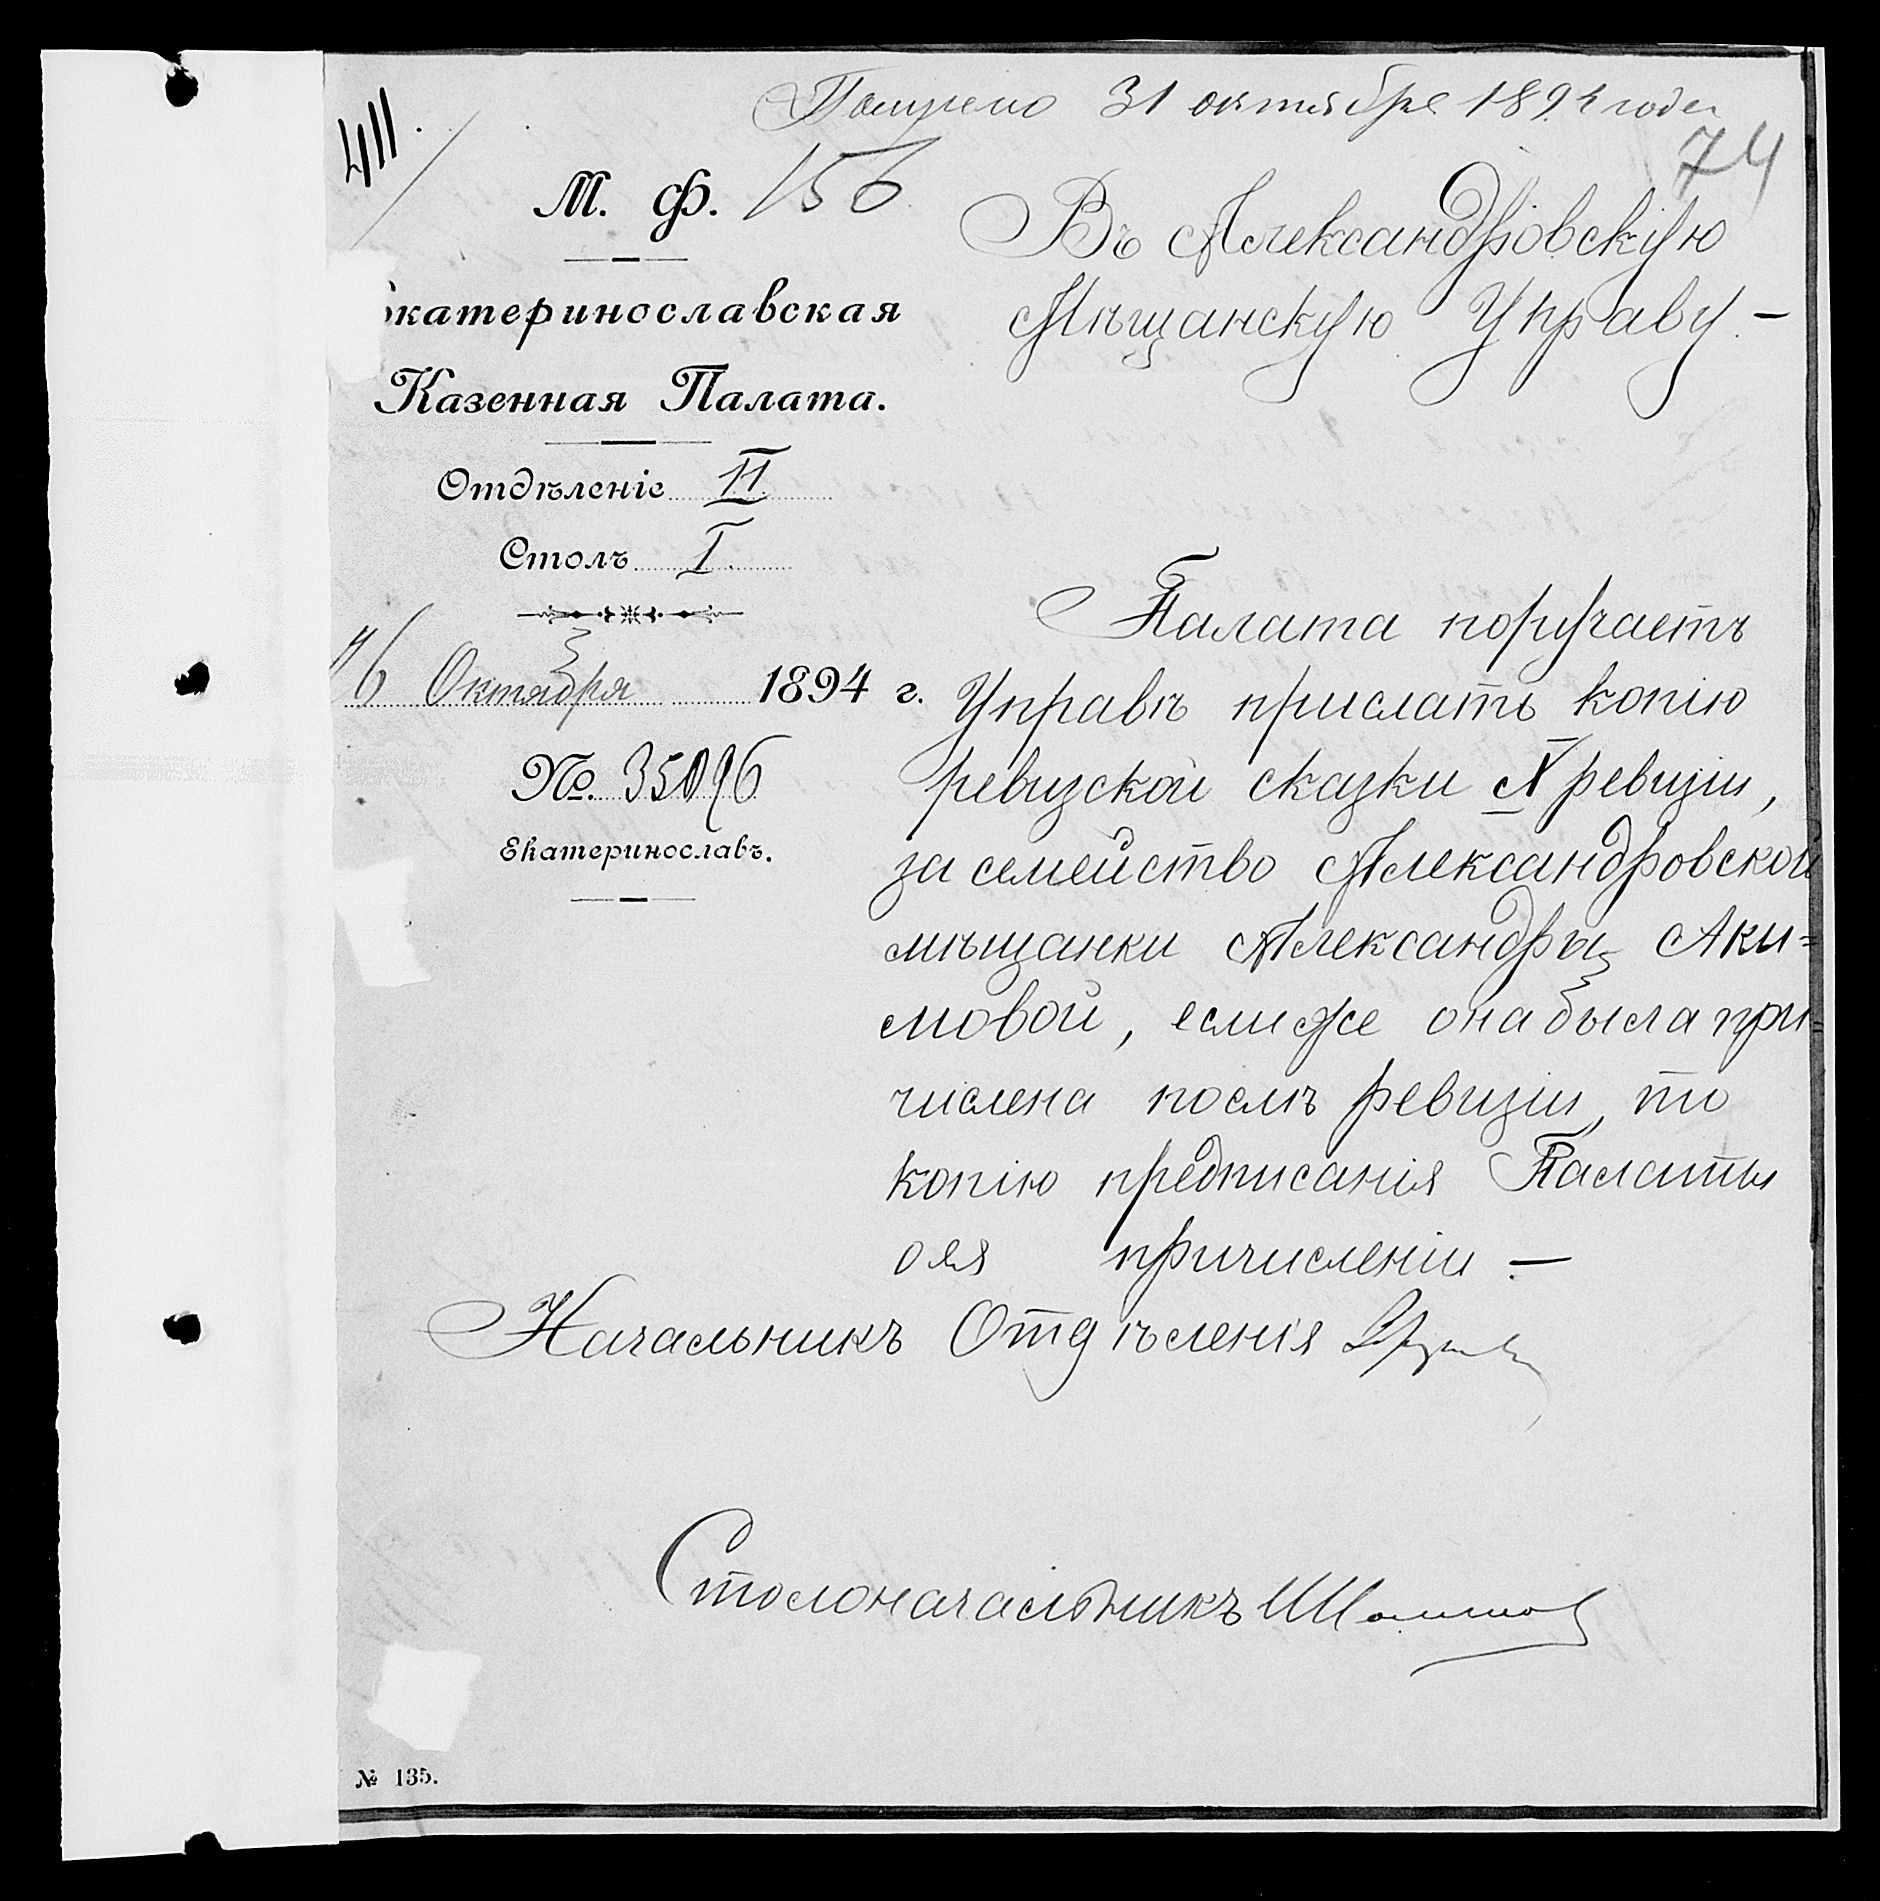 Получено 31 октября 1894 года
411.
74
М. Ф. 156
Въ Александровскую
Мѣщанскую Управу. —
Екатеринославская
Казенная Палата.
Отдѣленіе II
Столъ I.
Октября 1894 г.
№ 35096
Екатеринославъ.
Палата поручаетъ
Управѣ прислать копію
ревизской сказки X ревизіи,
за семейство Александровской
мѣщанки Александры Аки=
мовой, если же она была при=
числена послѣ ревизіи, то
копію предписанія Палаты
о ея причисленіи. —
Начальникъ Отдѣленія
Столоначальникъ
№ 135.